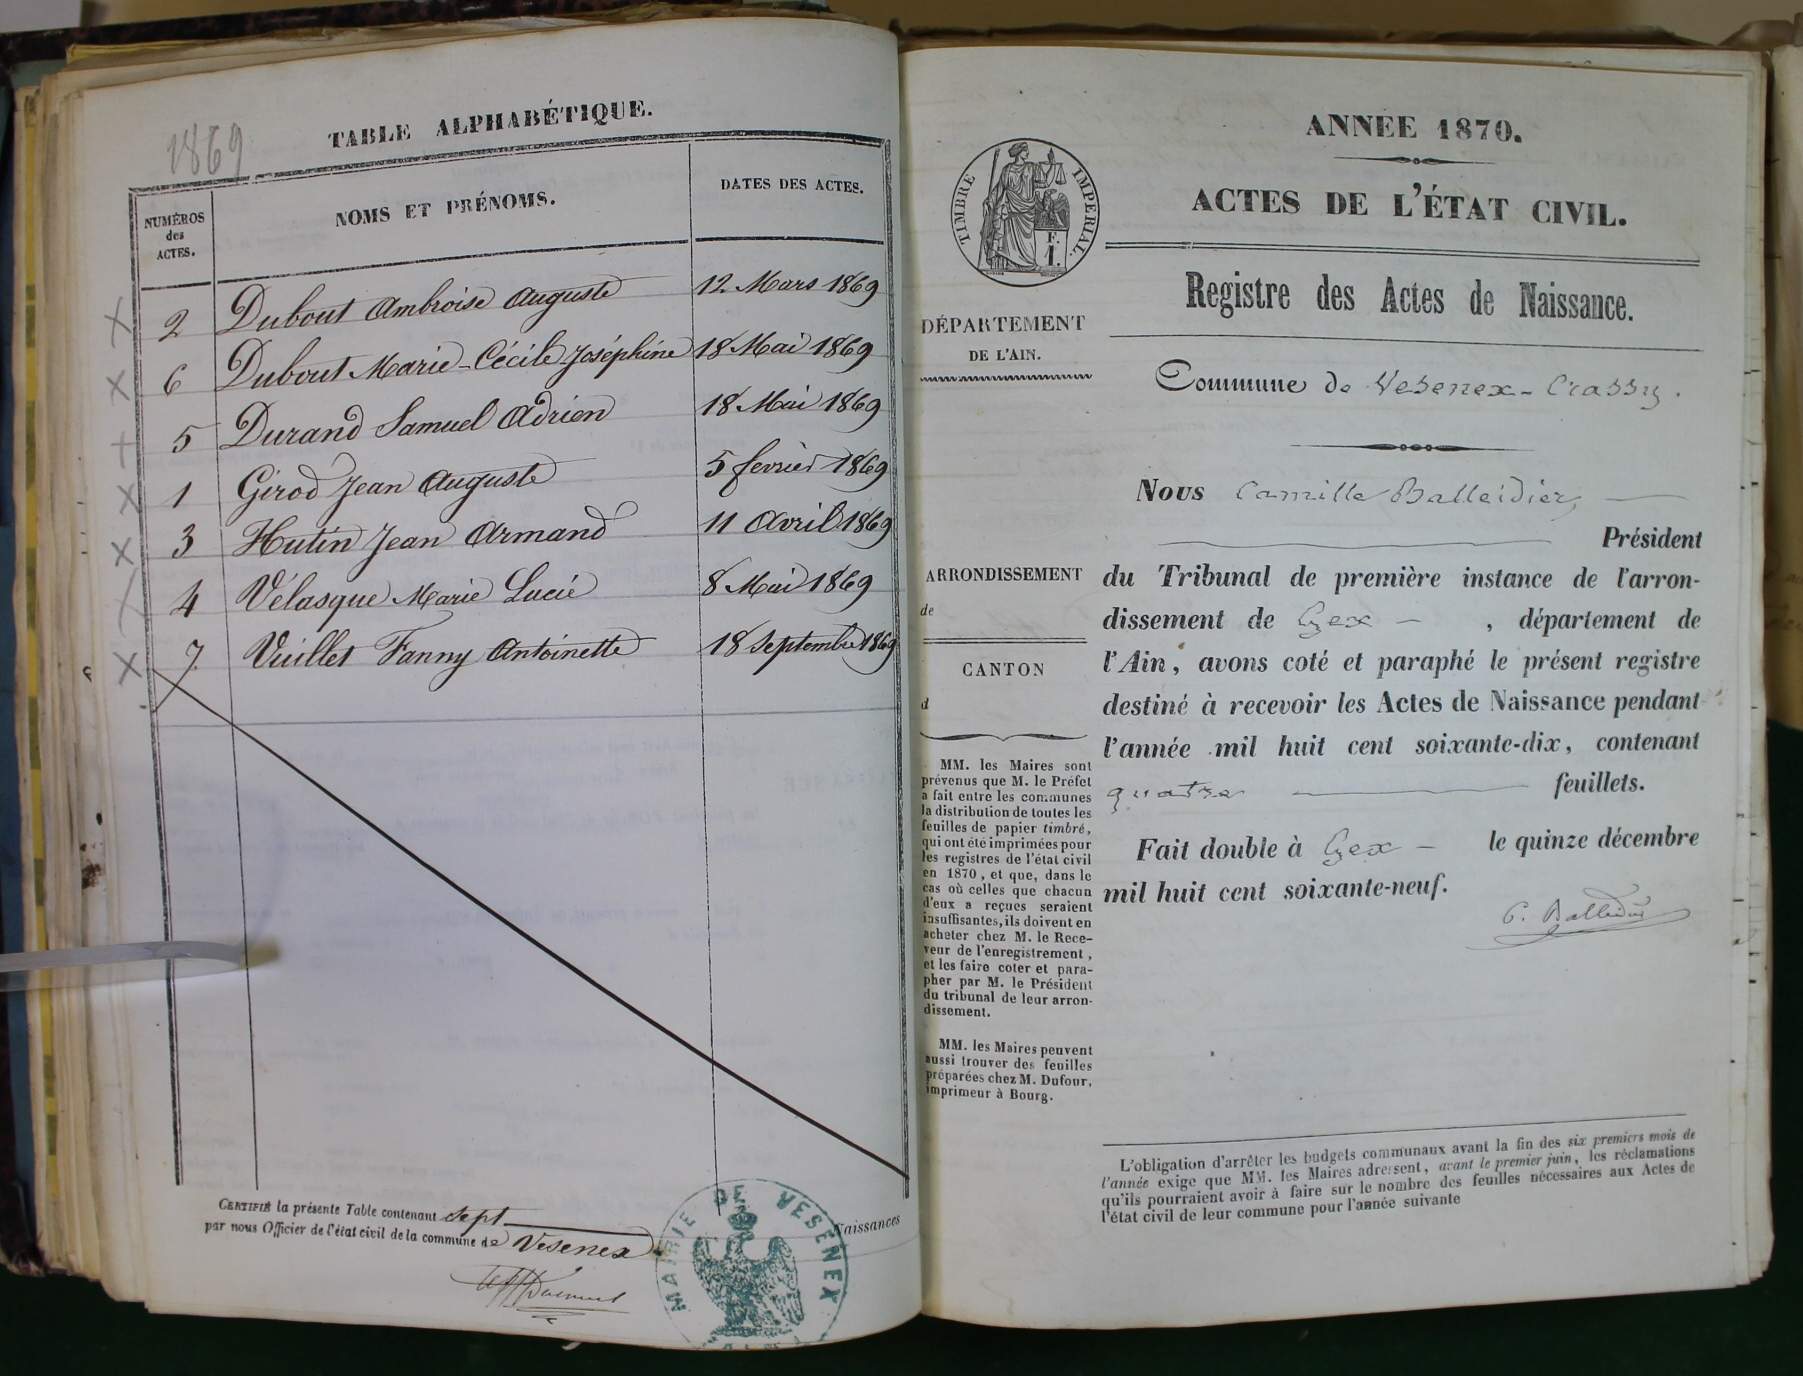 1869
TABLE ALPHABÉTIQUE.
NUMÉROS
des
ACTES.
NOMS ET PRÉNOMS.
DATES DES ACTES.
2 Dubout Ambroise Auguste 12 Mars 1869
6 Dubout Marie-Cécile Joséphine 18 Mai 1869
5 Durand Samuel Adrien 18 Mai 1869
1 Girod Jean Auguste 5 fevrier 1869
3 Hutin Jean Armand 11 Avril 1869
4 Vélasque Marie Lucie 8 Mai 1869
7 Vuillet Fanny Antoinette 18 Septembre 1869
CERTIFIÉ la présente Table contenant sept Naissances
par nous Officier de l'état civil de la commune de Vesenex
MAIRIE DE VESENEX
ANNÉE 1870.
ACTES DE L'ÉTAT CIVIL.
TIMBRE IMPERIAL.
F.
1.
Registre des Actes de Naissance.
DÉPARTEMENT
DE L'AIN.
Commune de Vesenex-Crassy.
Nous Camille Balleidier
Président
ARRONDISSEMENT
de
du Tribunal de première instance de l'arron-
dissement de Gex, département de
l'Ain, avons coté et paraphé le présent registre
destiné à recevoir les Actes de Naissance pendant
l'année mil huit cent soixante-dix, contenant
quatre feuillets.
Fait double à Gex le quinze décembre
mil huit cent soixante-neuf.
C. Balleidier
CANTON
d
MM. les Maires sont
prévenus que M. le Préfet
a fait entre les communes
la distribution de toutes les
feuilles de papier timbré,
qui ont été imprimées pour
les registres de l'état civil
en 1870, et que, dans le
cas où celles que chacun
d'eux a reçues seraient
insuffisantes, ils doivent en
acheter chez M. le Rece-
veur de l'enregistrement,
et les faire coter et para-
pher par M. le Président
du tribunal de leur arron-
dissement.
MM. les Maires peuvent
aussi trouver des feuilles
préparées chez M. Dufour,
imprimeur à Bourg.
L'obligation d'arrêter les budgets communaux avant la fin des six premiers mois de
l'année exige que MM. les Maires adressent, avant le premier juin, les réclamations
qu'ils pourraient avoir à faire sur le nombre des feuilles nécessaires aux Actes de
l'état civil de leur commune pour l'année suivante